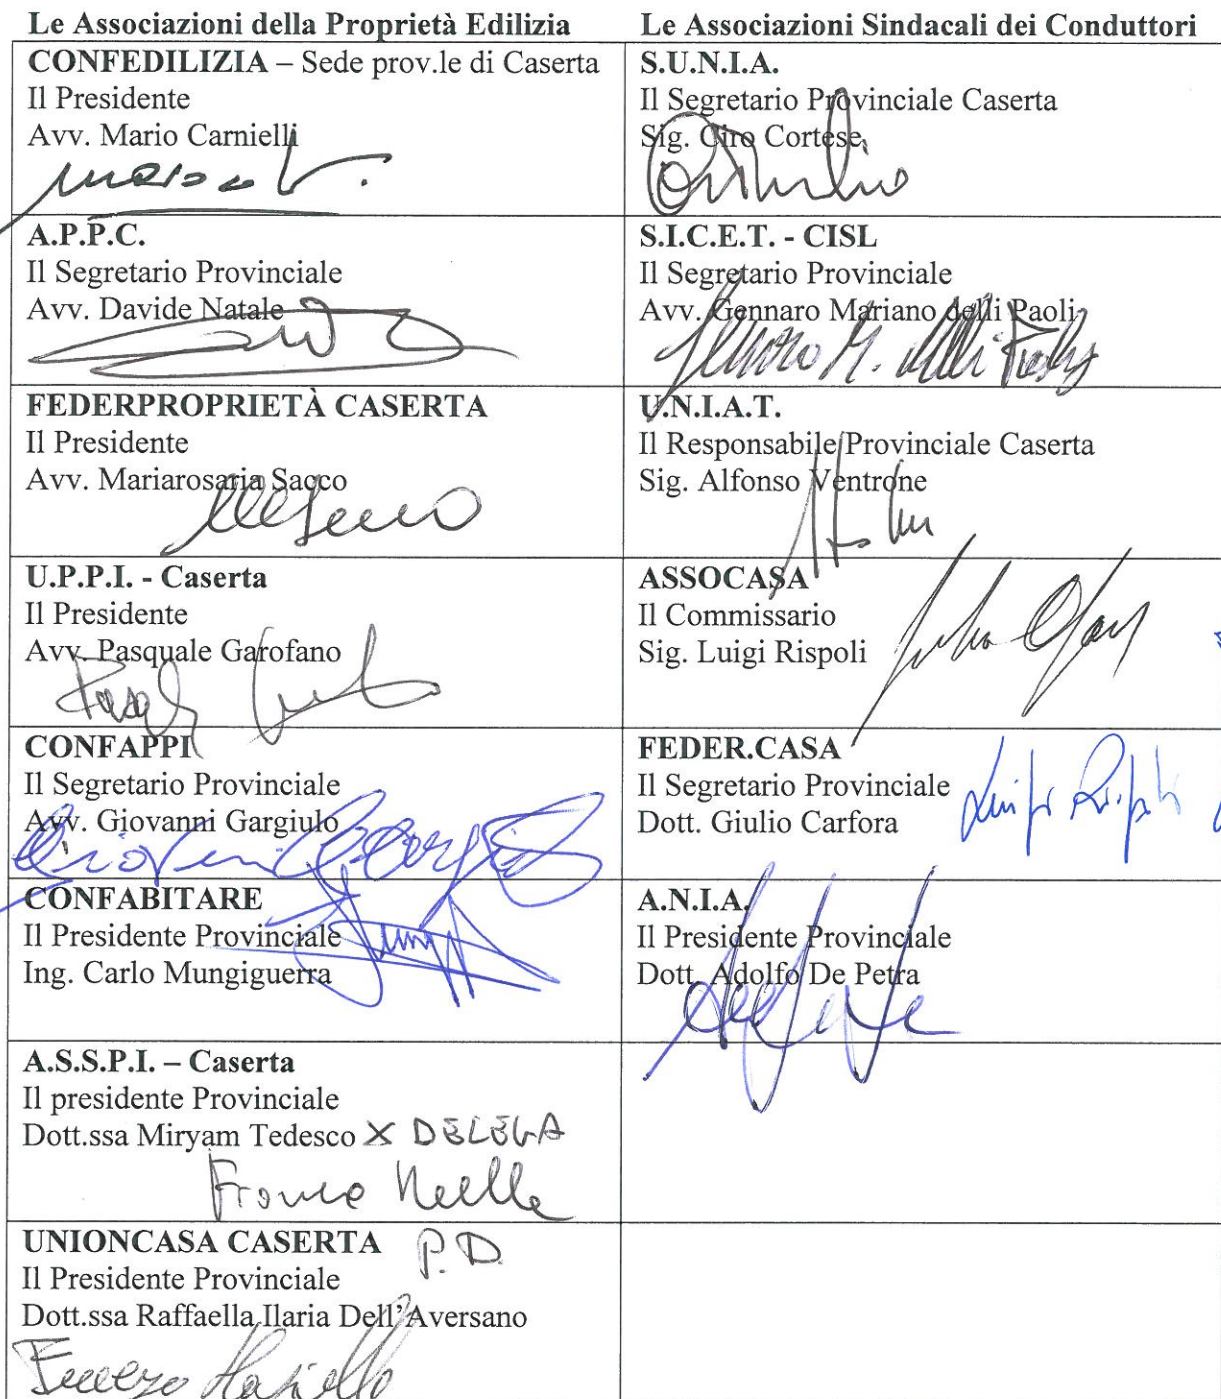 Le Associazioni della Proprietà Edilizia
Le Associazioni Sindacali dei Conduttori
CONFEDILIZIA – Sede prov.le di Caserta
Il Presidente
Avv. Mario Carnielli
S.U.N.I.A.
Il Segretario Provinciale Caserta
Sig. Ciro Cortese
A.P.P.C.
Il Segretario Provinciale
Avv. Davide Natale
S.I.C.E.T. - CISL
Il Segretario Provinciale
Avv. Gennaro Mariano delli Paoli
FEDERPROPRIETÀ CASERTA
Il Presidente
Avv. Mariarosaria Sacco
U.N.I.A.T.
Il Responsabile Provinciale Caserta
Sig. Alfonso Ventrone
U.P.P.I. - Caserta
Il Presidente
Avv. Pasquale Garofano
ASSOCASA
Il Commissario
Sig. Luigi Rispoli
CONFAPPI
Il Segretario Provinciale
Avv. Giovanni Gargiulo
FEDER.CASA
Il Segretario Provinciale
Dott. Giulio Carfora
Luigi Rispoli
CONFABITARE
Il Presidente Provinciale
Ing. Carlo Mungiguerra
A.N.I.A.
Il Presidente Provinciale
Dott. Adolfo De Petra
A.S.S.P.I. – Caserta
Il presidente Provinciale
Dott.ssa Miryam Tedesco X DELEGA
UNIONCASA CASERTA P.D.
Il Presidente Provinciale
Dott.ssa Raffaella Ilaria Dell'Aversano